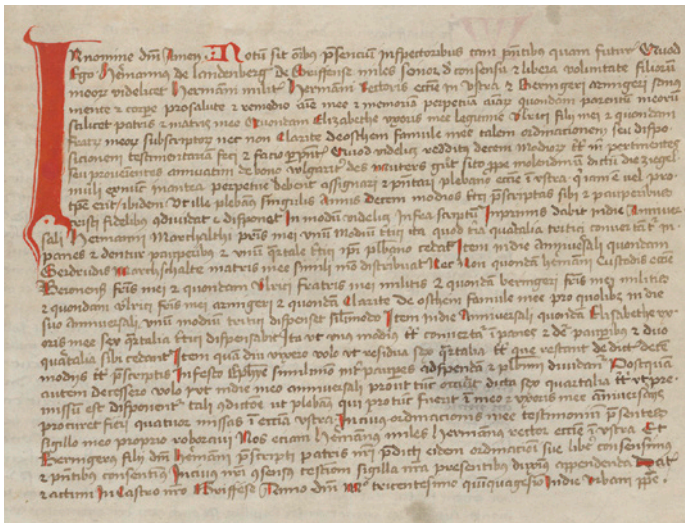 In nomine dm̄ Amen. Notū sit oībꝫ p̄sencium inspectoribus tam p̄ntibꝫ quam futur̄ Quod
Ego Hermannus de Landenberg de Griffense miles senior d̄ consensu ⁊ libera voluntate filiorū
meoꝝ videlicet Hermanni milit̄ Hermanni Rectoris eccīe in Ustra ⁊ Beringeri armigeri sanus
mente ⁊ corpe pro salute ⁊ remedio aīe mee ⁊ memoria perpetua aīaꝝ quondam parentū meorū
scilicet patris ⁊ matris mee Quondam Elizabethe uxoris mee legitime Ulrici filij mei ⁊ quondam
fratrū meoꝝ subscriptoꝝ nec non Clarite de Osthein famule mee talem ordinacionem seu dispo-
sicionem testamentariā feci ⁊ facio p̄ p̄nt̄ Quod videlicet redditꝰ decem modioꝝ tt̄ nī pertinentes
seu proveientes annuatim de bono vulgarit̄ des gūt sito ꝓpe molendinum dictū die ziegel
muli exnūc inantea perpetue debent assignari ⁊ p̄ntari plebano eccīe in Ustra q̄ iam ē vel pro
tꝑe erit ibidem Ut ille plebanꝰ singulis Annis decem modios tt̄ci p̄scriptas sibi ⁊ pauperibus
cristi fidelibus dividat ⁊ disponet In modū videlicet infra scriptū Inprimis dabit in die Anniver
sali Hermanni Marchalchi pr̄is mei unū Modiū tt̄ci ita quod tria quartalia tritici convertāt̄ in
panes ⁊ dentur pauperibus ⁊ unū q̄rtale tt̄ci ip̄i plb̄ano cedat Item in die anniversali quondam
Gerdrudis Marchschalte matris mee simili mō distribuat Nec Non quondā hermāni Custodis eccīe
Beronens̄ fr̄is mei ⁊ quondam Ulrici fratris mei militis ⁊ quondā beringeri fr̄is mei militis
⁊ quondam Ulrici fr̄is mei armigeri ⁊ quondā Clarite de osthein famule mee pro quolibꝫ in die
suo anniversali unū modiū tritici dispenset sil̄i modo Item in die Anniversali quondā Elisabethe ux
oris mee sex q̄rtalia tt̄ci dispensabit Ita ut unus modiꝰ tt̄ convertat̄ in panes ⁊ det̄ pauꝑibꝰ ⁊ duo
quartalia sibi cedant Item quā diu vixero volo ut residua sex q̄rtalia tt̄ que restant de dict̄ decē
modijs tt̄ p̄scriptis in festo simili mō int̄ pauꝑes dispenset ⁊ plb̄num dividant Postquā
autem decessero volo ut in die meo anniversali prout tūc occurret dicta sex quartalia tt̄ ut pre
missū est disponent̄ tali ꝯdictōe ut plebanꝰ qui pro tūc fuerit in meo ⁊ uxoris mee anniversarijs
procuret fieri quatuor missas in eccīa Ustra In cuiꝰ ordinacionis mee testimoniū p̄sentes
sigillo meo proprio roboravi Nos eciam hermānꝰ miles hermānus rector eccīe in Ustra Et
Beringerus filij dm̄ hermāni p̄scripti patris nr̄i p̄dicti eidem ordinacioni sue liberū consensimus
⁊ p̄ntibus consentimꝰ In cuiꝰ nr̄i ꝯsensꝰ testiom̄ sigilla nr̄a presentibus duximꝰ appendenda Dat̄
et actum in Castro nr̄o Griffese Anno dm̄ Mº tricentesimo quinquagesimo In die Urbani ꝑpe.